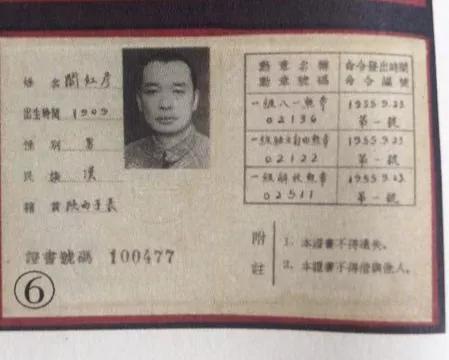 姓名 閻紅彥
出生時間 1909
性別 男
民族 漢
籍貫 陝西子長
證書號碼 100477
⑥
勳章名稱 命令發出時間
勳章號碼 命令編號
一級八一勲章 1955.9.23
02136 第一號
一級独立自由勲章 1955.9.23
02122 第一號
一級解放勲章 1955.9.23
02511 第一號
附註
1. 本證書不得遺失。
2. 本證書不得借與他人。